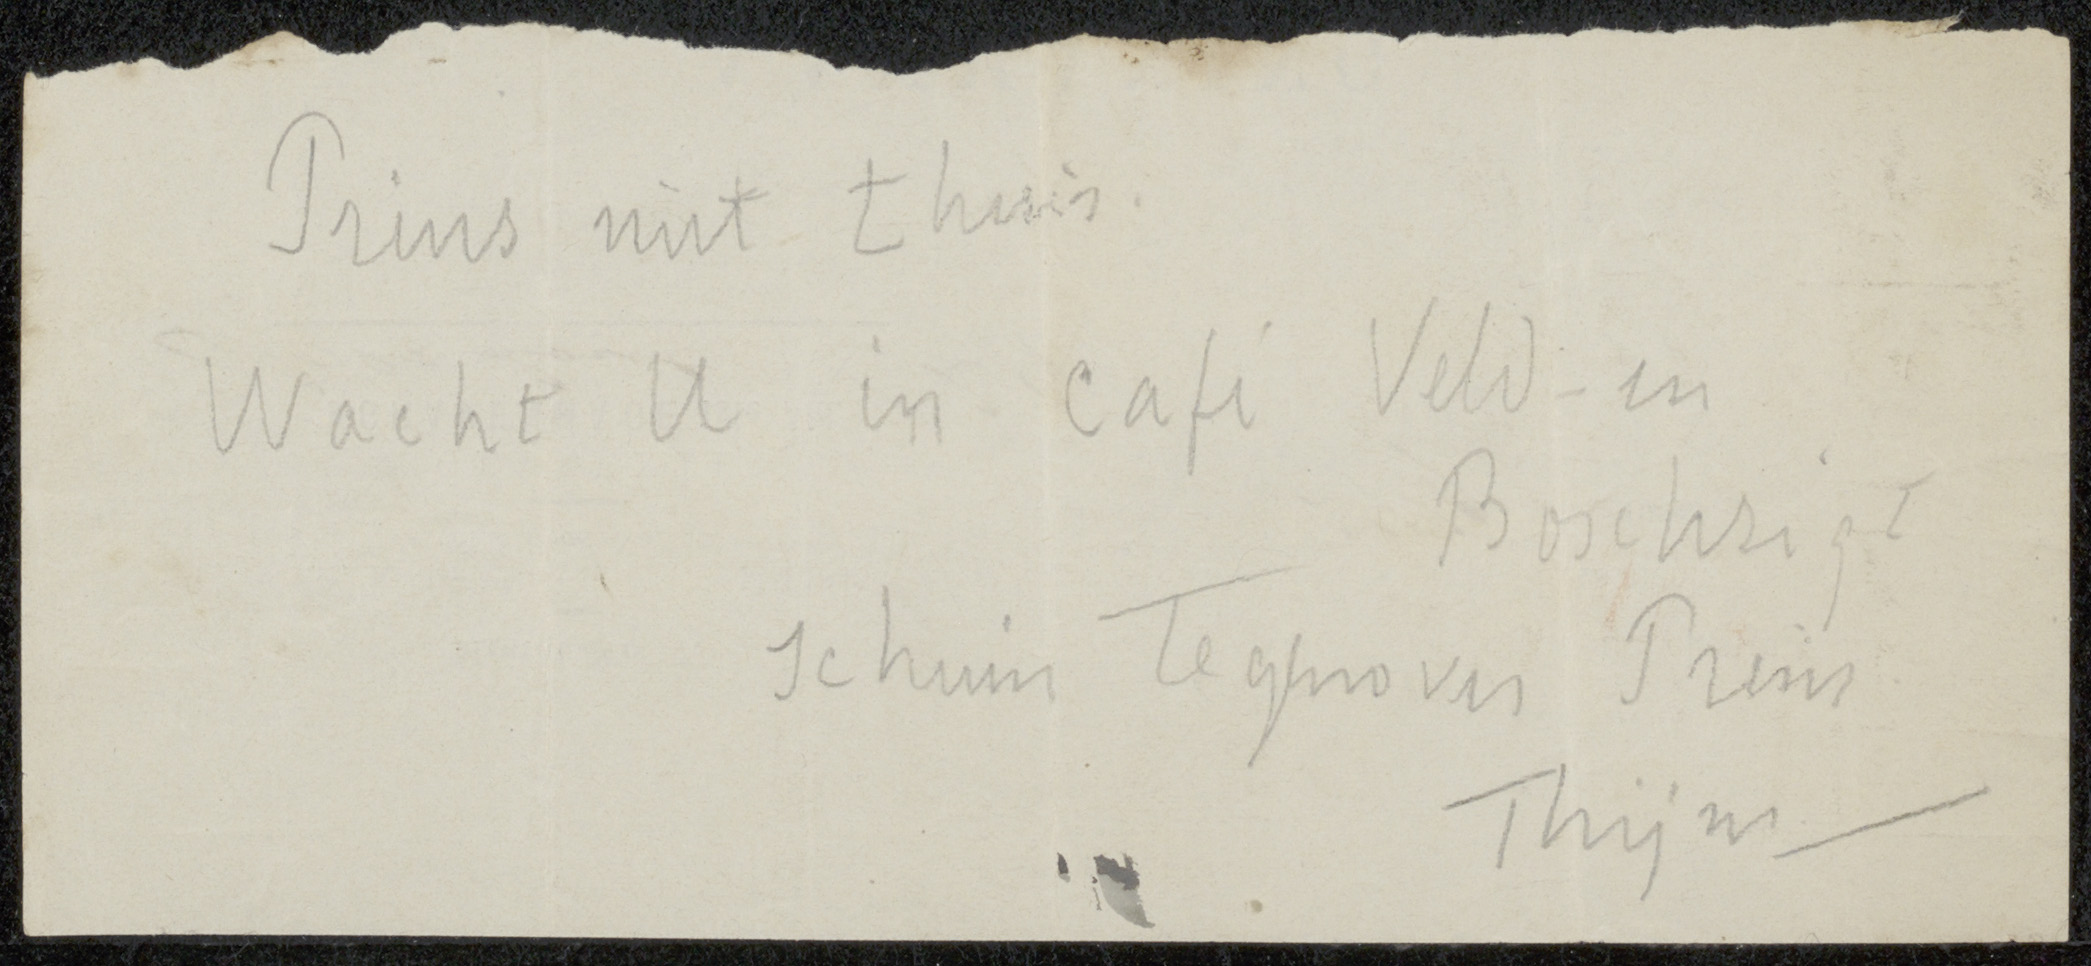 Prins niet thuis.
Wacht U in café Veld- en
Boschzigt
schuin Tegenover Prins
Thijm